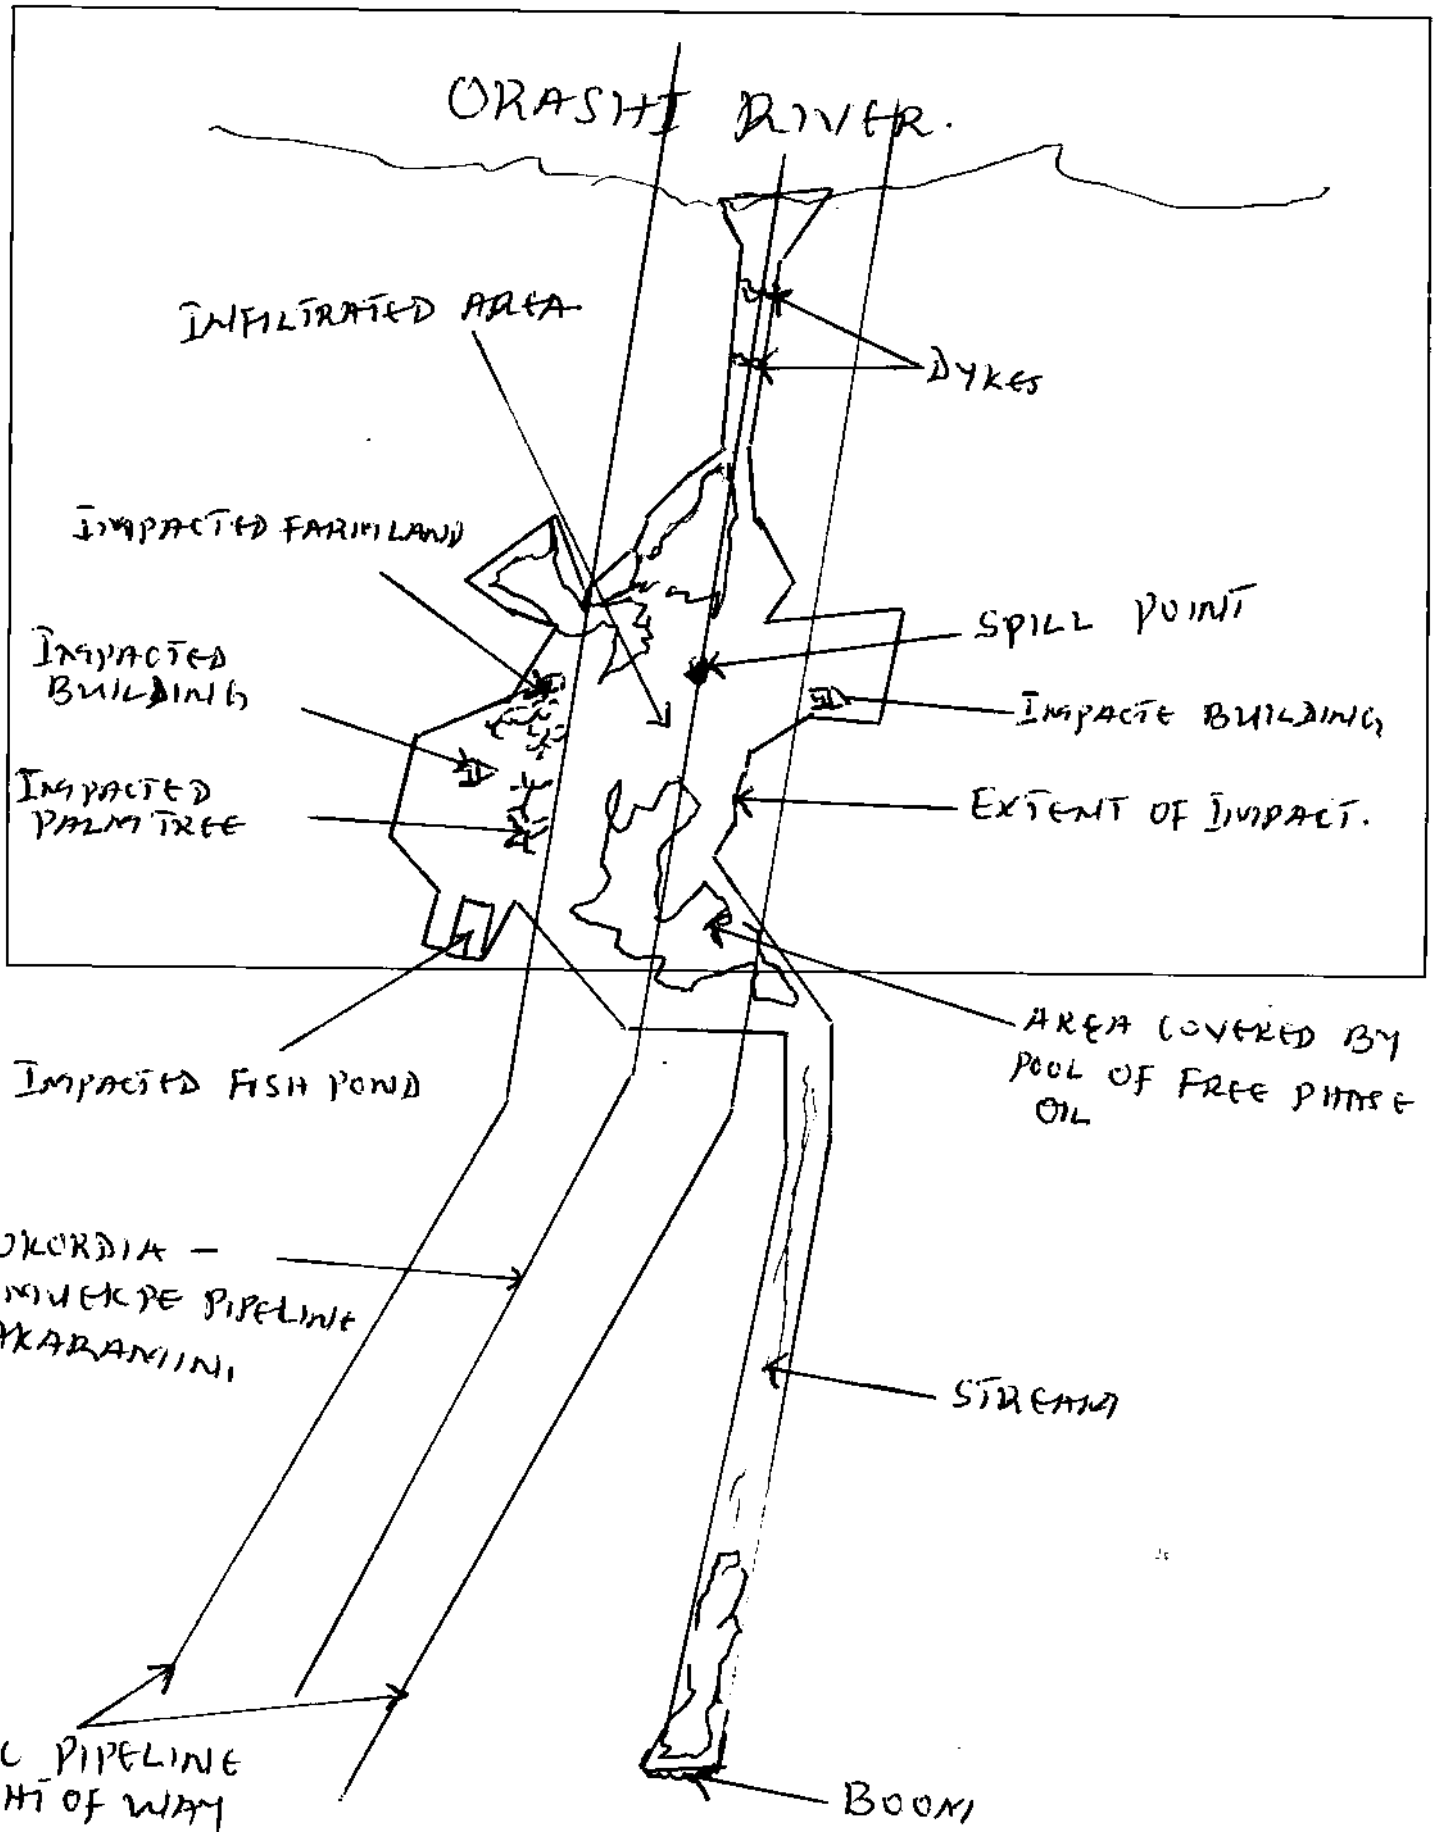 ORASHI RIVER.
INFILTRATED AREA
DYKES
IMPACTED FARMLAND
SPILL POINT
IMPACTED
BUILDING
IMPACTE BUILDING
IMPACTED
PALM TREE
EXTENT OF IMPACT.
AREA COVERED BY
POOL OF FREE PHASE
OIL
IMPACTED FISH POND
OKORDIA -
PIPELINE
STREAM
C PIPELINE
HT OF WAY
BOOM